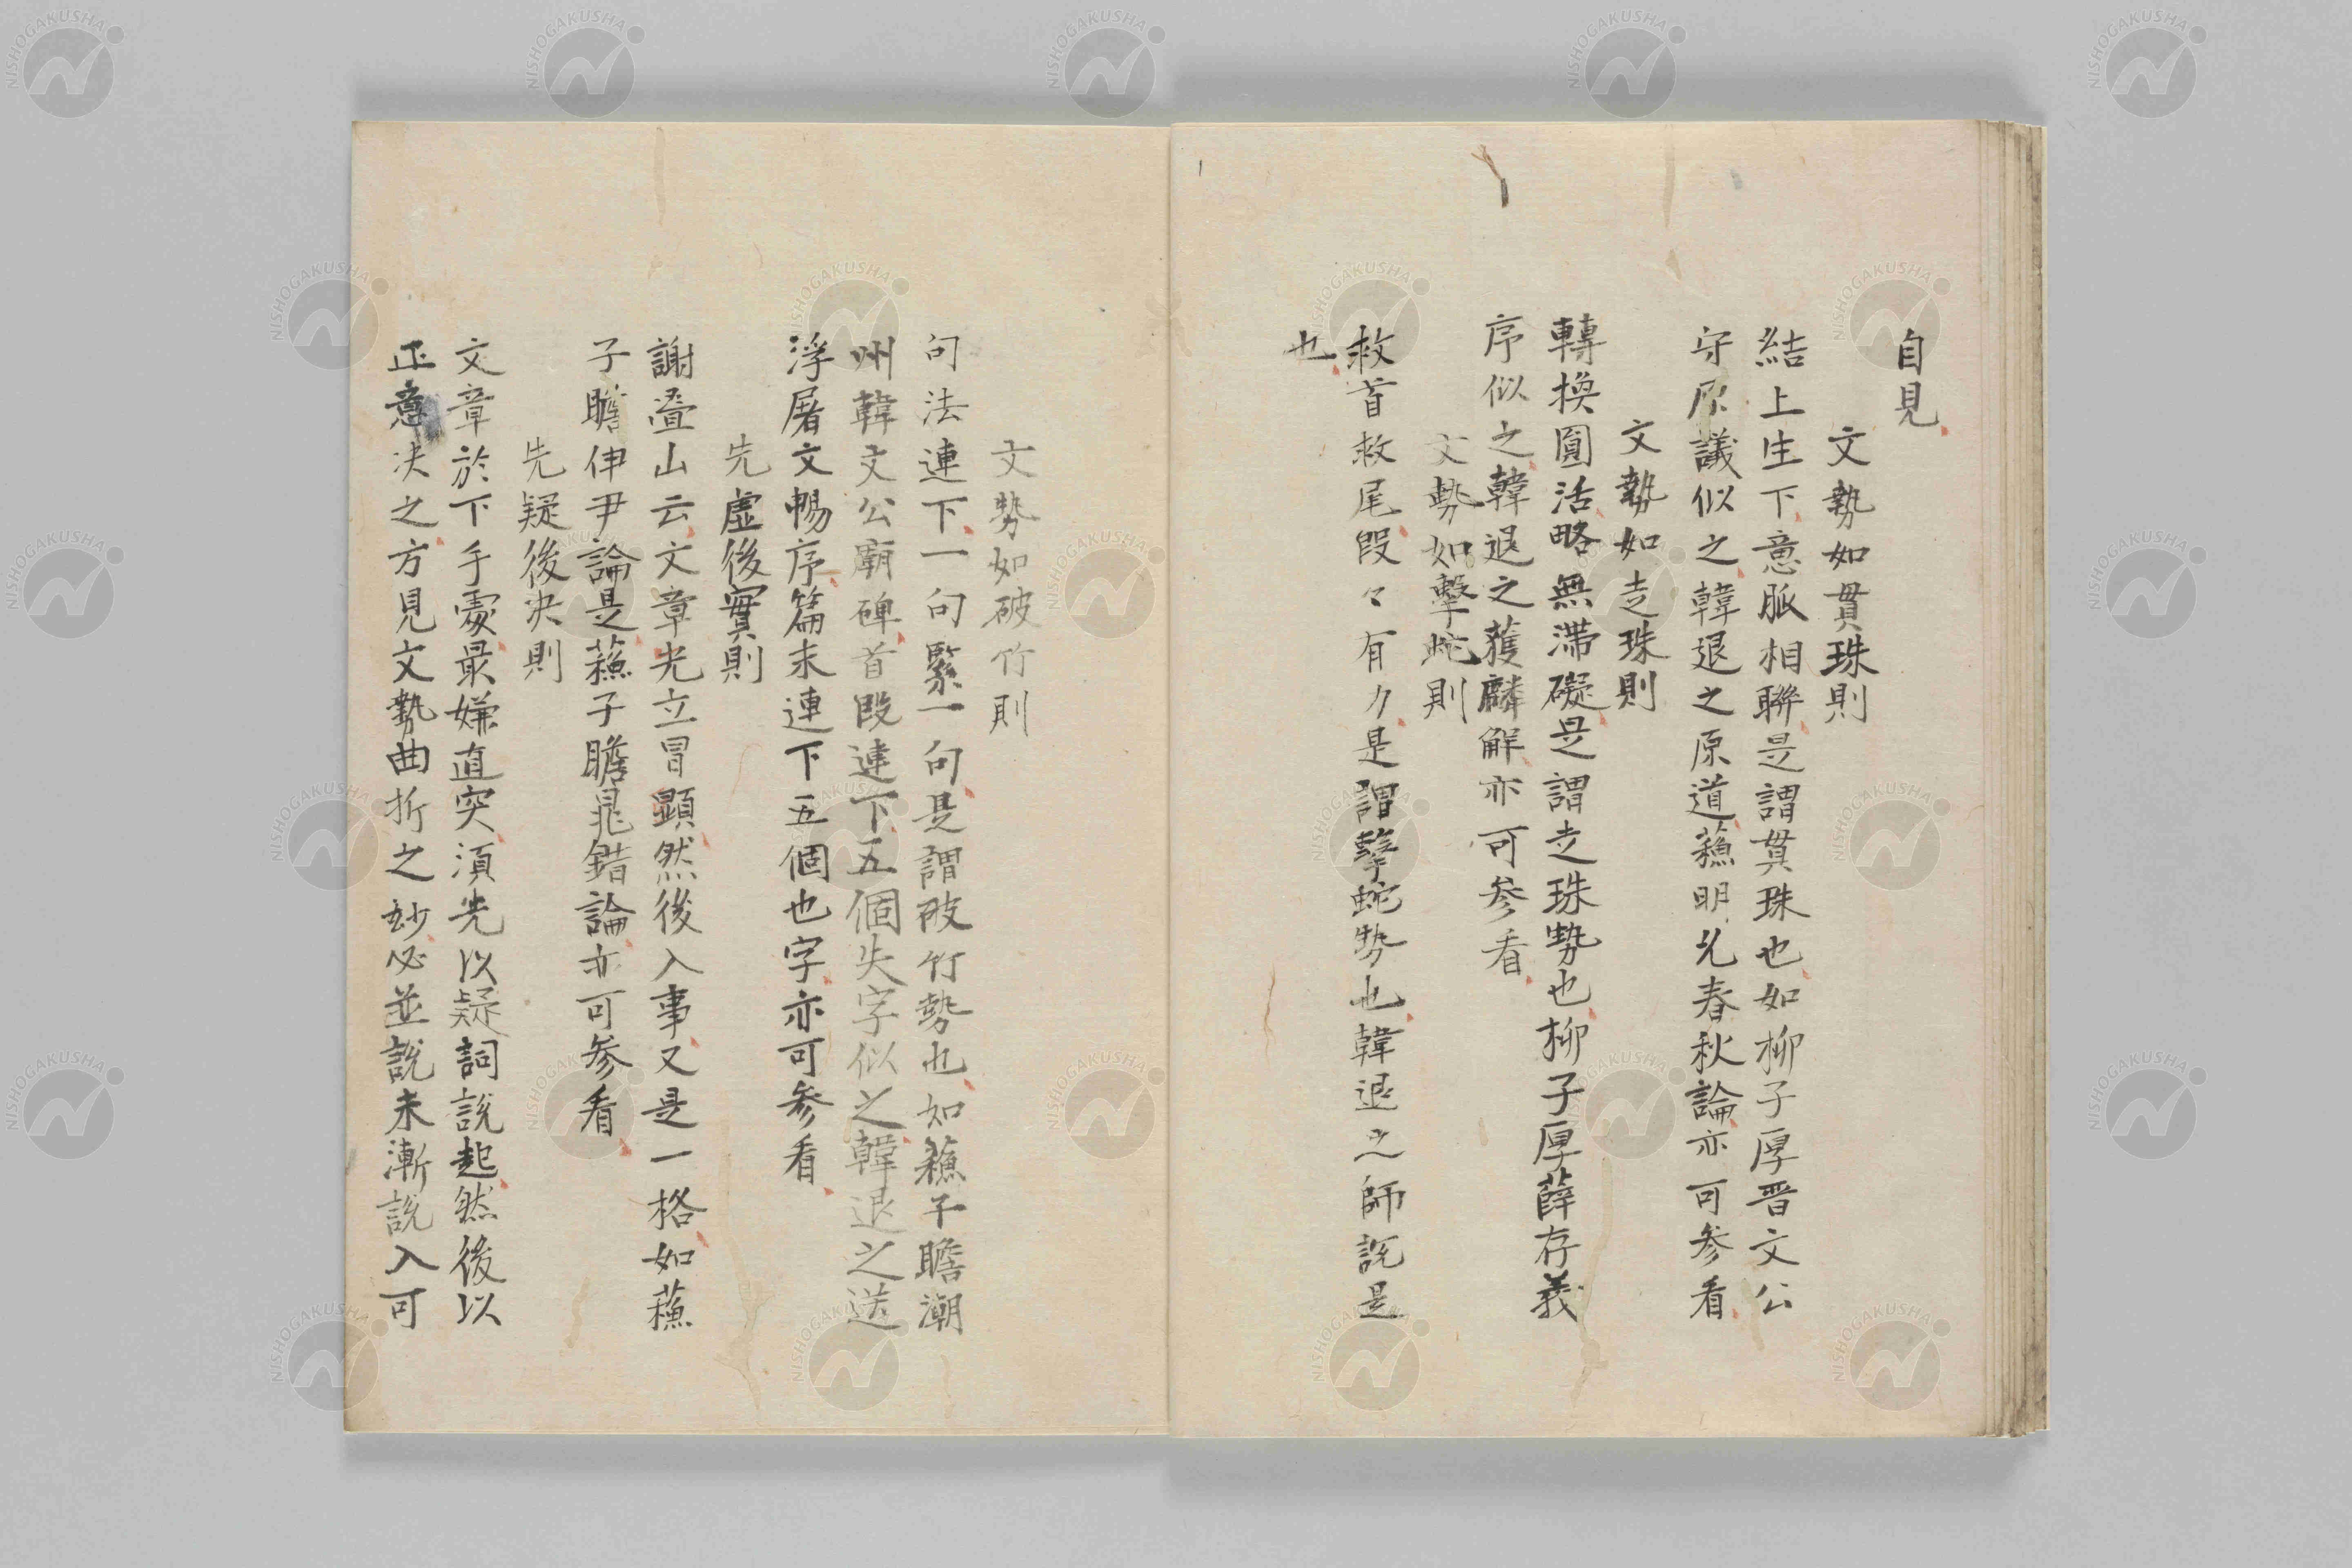 自見
文勢如貫珠則
結上生下意脈相聯是謂貫珠也如柳子厚晋文公
守原議似之韓退之原道蘓明允春秋論亦可参看
文勢如走珠則
轉換圓活略無滞礙是謂走珠勢也柳子厚薛存義
序似之韓退之獲麟解亦可参看
文勢如擊蛇則
救首救尾段々有力是謂擊蛇勢也韓退之師説是
也
文勢如破竹則
句法連下一句緊一句是謂破竹勢也如蘓子瞻潮
州韓文公廟碑首段連下五個失字似之韓退之送
浮屠文暢序篇末連下五個也字亦可参看
先虚後實則
謝疊山云文章先立冒顕然後入事又是一格如蘓
子瞻伊尹論是蘓子瞻晁錯論亦可参看
先疑後决則
文章於下手處最嫌直突須先以疑詞説起然後以
正意决之方見文勢曲折之妙必並説未漸説入可
NISHOGAKUSHA